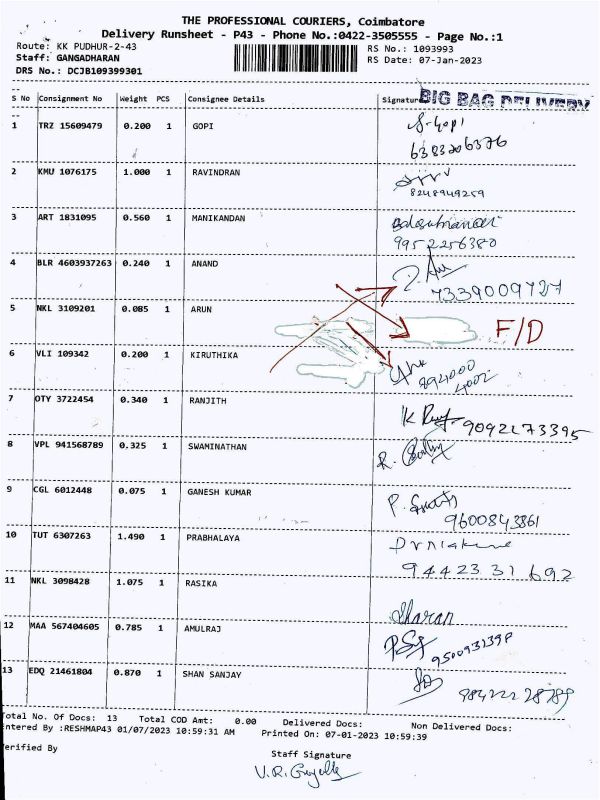 THE PROFESSIONAL COURIERS, Coimbatore
Delivery Runsheet - P43 - Phone No.:0422-3505555 - Page No.:1
Route: KK PUDHUR-2-43 RS No.: 1093993
Staff: GANGADHARAN RS Date: 07-Jan-2023
DRS No.: DCJB109399301
S No Consignment No Weight PCS Consignee Details Signature BIG BAG DELIVERY
1 TRZ 15609479 0.200 1 GOPI S-Gopi
6383206376
2 KMU 1076175 1.000 1 RAVINDRAN
8248949259
3 ART 1831095 0.560 1 MANIKANDAN Balasubramani
9952256380
4 BLR 4603937263 0.240 1 ANAND
7339009727
5 NKL 3109201 0.085 1 ARUN F/D
6 VLI 109342 0.200 1 KIRUTHIKA
894000
4002
7 OTY 3722454 0.340 1 RANJITH
9092273395
8 VPL 941568789 0.325 1 SWAMINATHAN
9 CGL 6012448 0.075 1 GANESH KUMAR
9600843861
10 TUT 6307263 1.490 1 PRABHALAYA
9442331692
11 NKL 3098428 1.075 1 RASIKA Sharan
12 MAA 567404605 0.785 1 AMULRAJ
9500932398
13 EDQ 21461804 0.870 1 SHAN SANJAY
Total No. Of Docs: 13 Total COD Amt: 0.00 Delivered Docs: Non Delivered Docs:
Entered By :RESHMAP43 01/07/2023 10:59:31 AM Printed On: 07-01-2023 10:59:39
Verified By Staff Signature